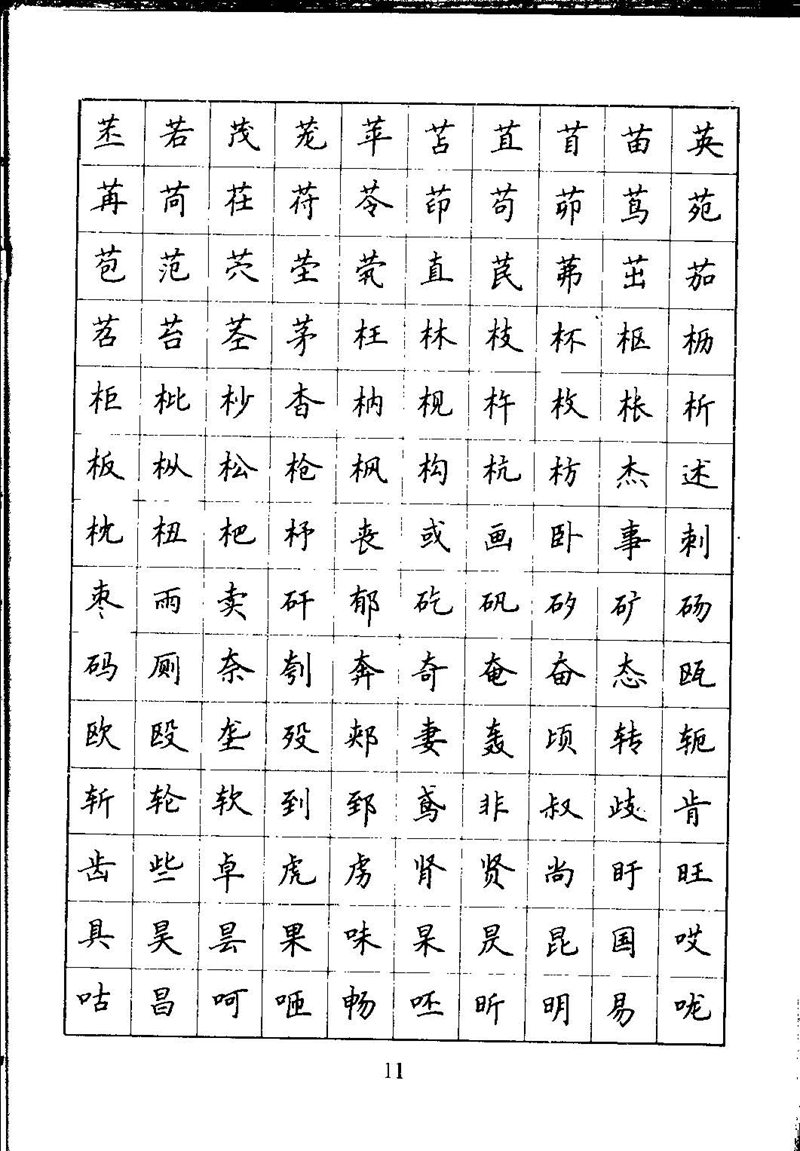 苤若茂茏苹苫苴苜苗英
苒苘茌苻苓茚苟茆茑苑
苞范茓茔茕直苠茀茁茄
苕苔茎茅枉林枝杯枢枥
柜枇杪杳枘枧杵枚枨析
板枞松枪枫构杭枋杰述
枕杻杷杼丧或画卧事刺
枣雨卖矸郁矻矾矽矿砀
码厕奈刳奔奇奄奋态瓯
欧殴垄殁郏妻轰顷转轭
斩轮软到郅鸢非叔歧肯
齿些卓虎虏肾贤尚盱旺
具昊昙果味杲昃昆国哎
咕昌呵咂畅呸昕明易咙
11